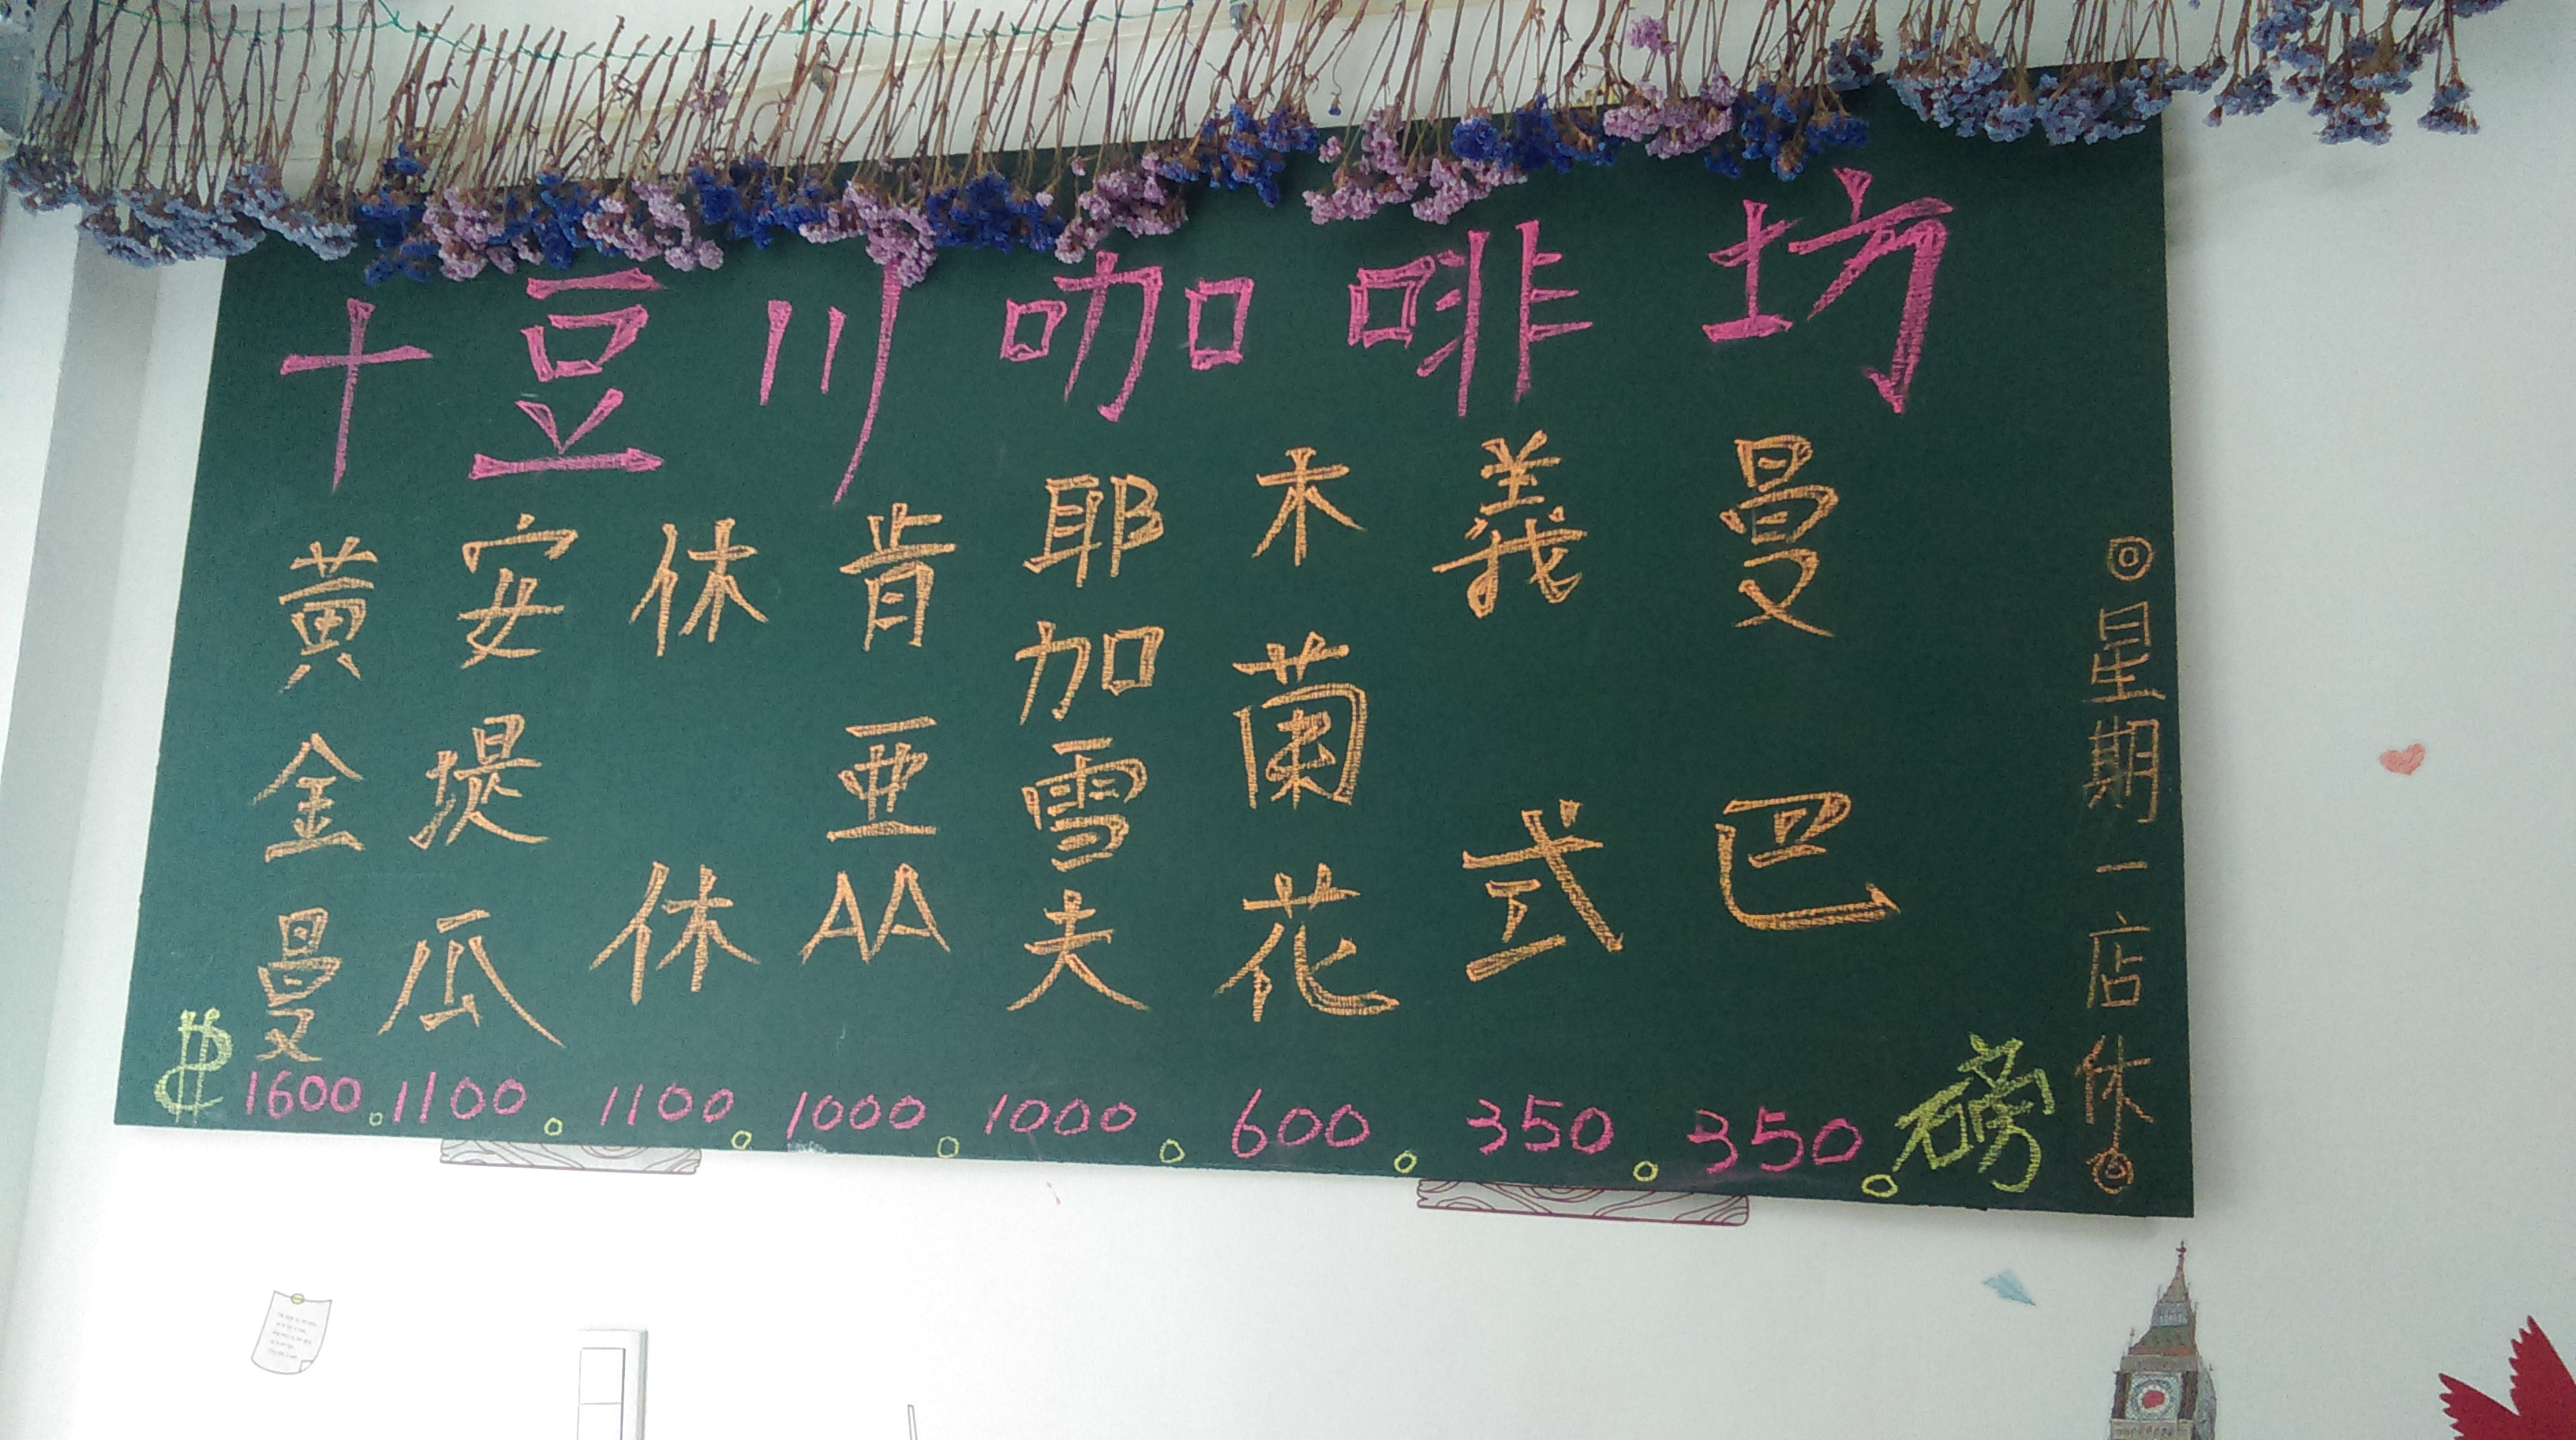 十豆川咖啡坊
黃金曼
安堤瓜
休休
肯亜AA
耶加雪夫
木蘭花
義式
曼巴
$ 1600。1100。1100。1000。1000。600。350。350。磅
◎星期一店休◎